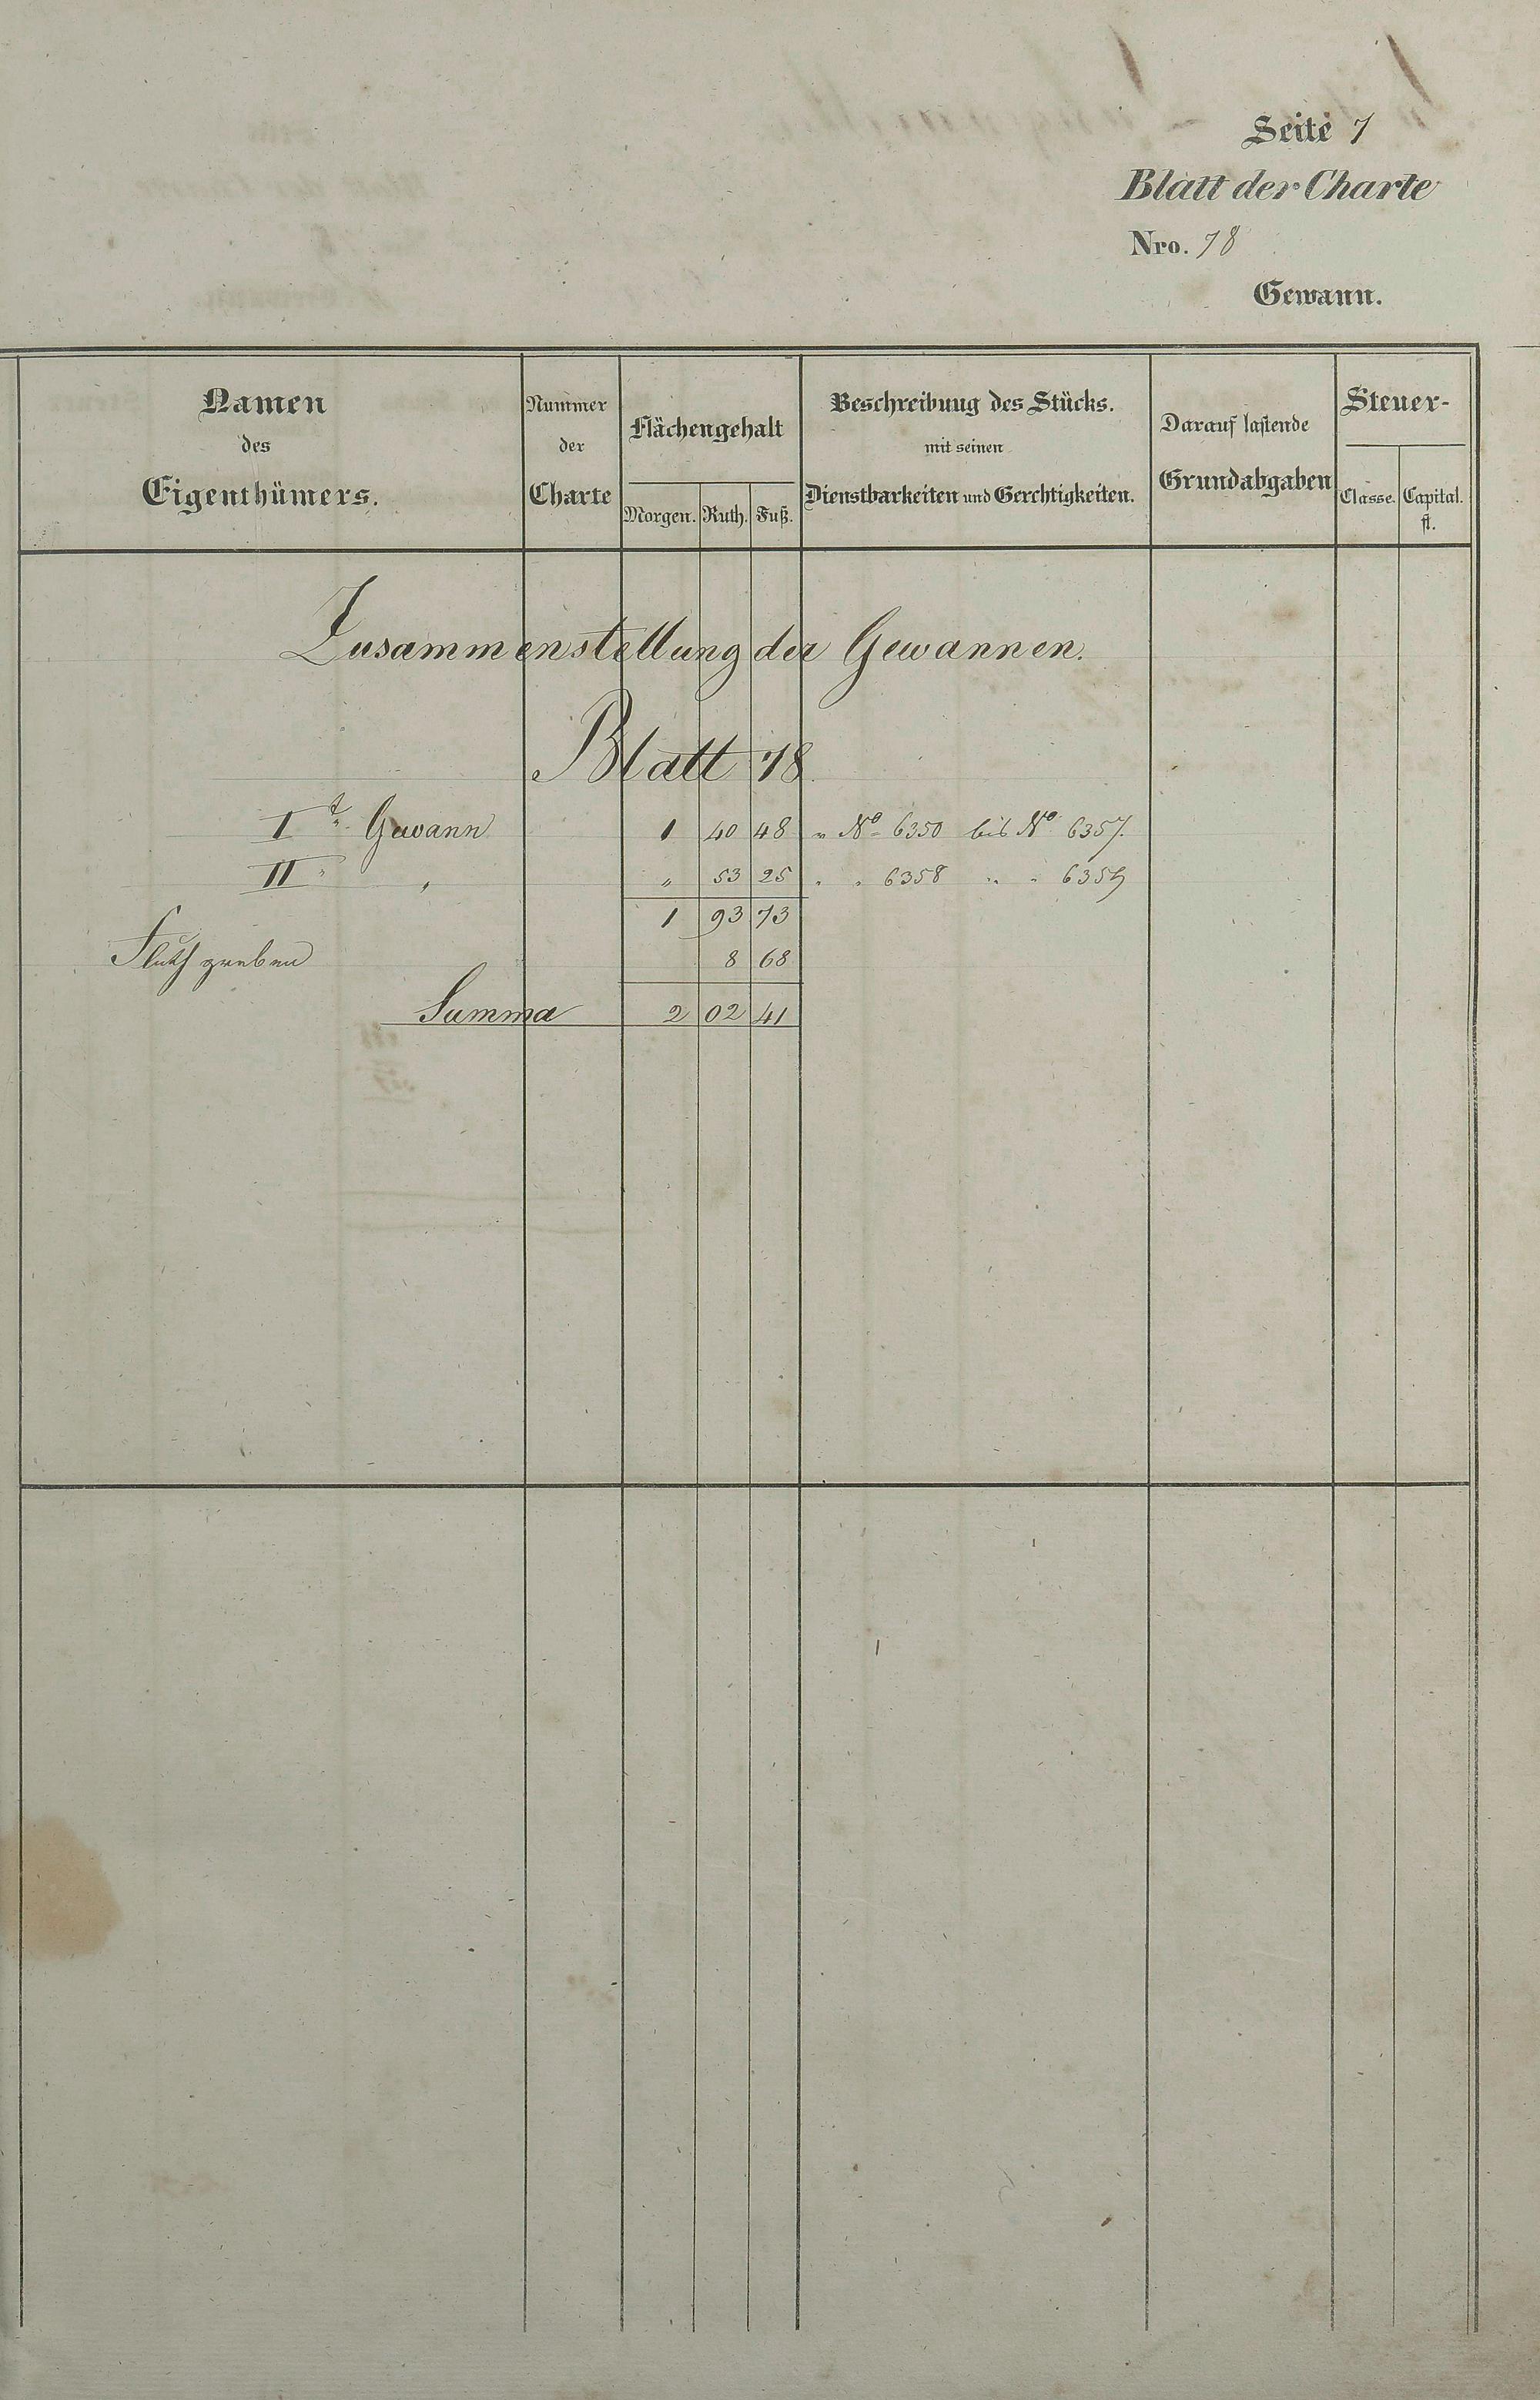 Seite 7
Blatt der Charte
Nro. 78
Gewann.
Namen des Eigenthümers.
Nummer der Charte
Flächengehalt
Morgen. Ruth. Fuß.
Beschreibung des Stücks.
mit seinen
Dienstbarkeiten und Gerechtigkeiten.
Darauf lastende
Grundabgaben
Steuer-
Classe. Capital.
fl.
Zusammenstellung der Gewannen.
Blatt 78.
I.te Gewann 1 40 48 " No 6350 bis No 6357.
II " " " 53 25 " " 6358 " " 6359
1 93 73
Fluthgraben 8 68
Summa 2 02 41